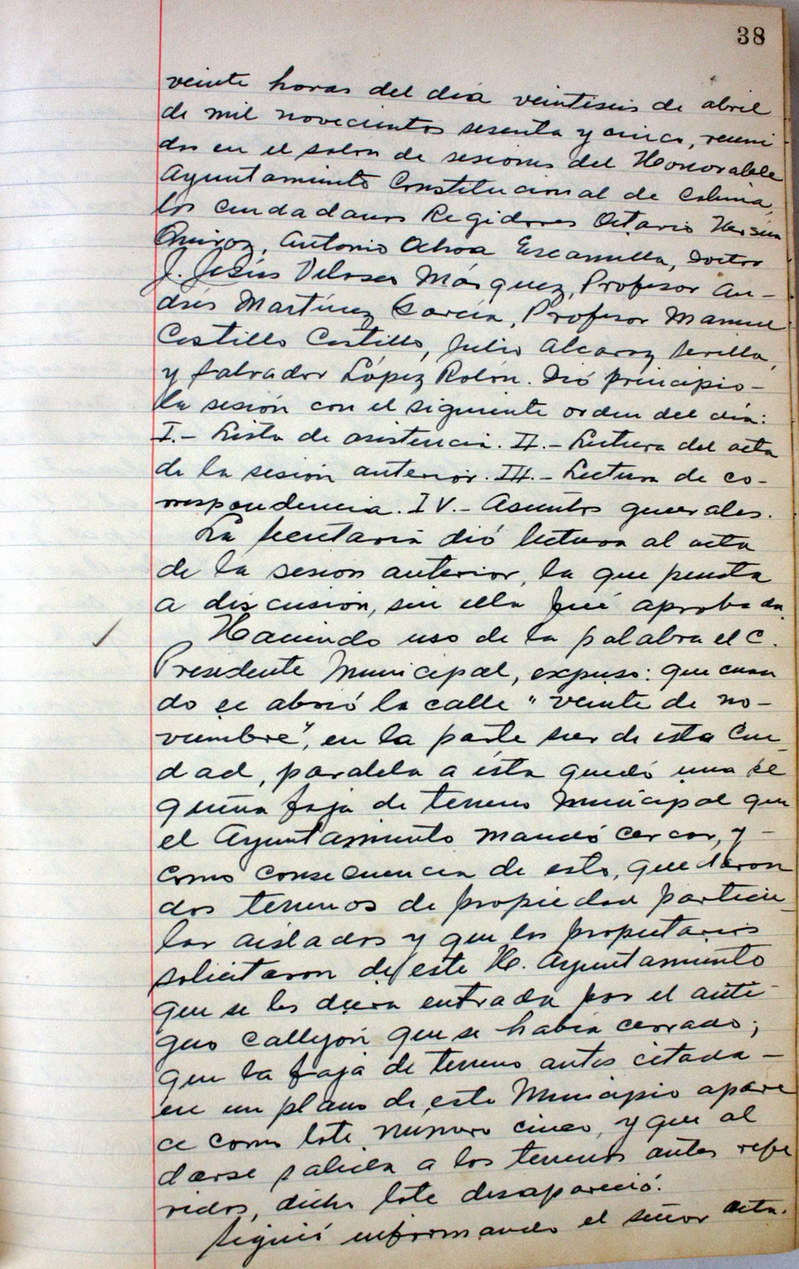 38
veinte horas del día veintiseis de abril
de mil novecientos sesenta y cinco, reuni
dos en el salón de sesiones del Honorable
Ayuntamiento Constitucional de Colima,
los ciudadanos Regidores Octavio
Quiroz, Antonio Ochoa Escamilla, Doctor
J. Jesús Velasco Márquez, Profesor An-
drés Martínez García, Profesor Manuel
Castillo Castillo, Julio Alcaraz Sevilla,
y Salvador López Rolón. Dió principio-
la sesión con el siguiente orden del día:
I.- Lista de asistencia. II.- Lectura del acta
de la sesión anterior. III.- Lectura de co-
rrespondencia. IV.- Asuntos generales.
La Secretaría dió lectura al acta
de la sesión anterior, la que puesta
a discusión, sin ella fué aprobada.
Haciendo uso de la palabra el C.
Presidente Municipal, expuso: que cuan
do se abrió la calle "veinte de no-
viembre", en la parte sur de esta Ciu
dad, paralela a ésta quedó una pe
queña faja de terreno Municipal que
el Ayuntamiento mandó cercar, y -
como consecuencia de esto, quedaron
dos terrenos de propiedad particu-
lar aislados y que los propietarios
solicitaron de este H. Ayuntamiento
que se les diera entrada por el anti-
guo callejón que se había cerrado;
que la faja de terreno antes citada -
en un plano de este Municipio apare
ce como lote número cinco, y que al
darse salida a los terrenos antes refe
ridos, dicho lote desapareció.
Siguió informando el señor